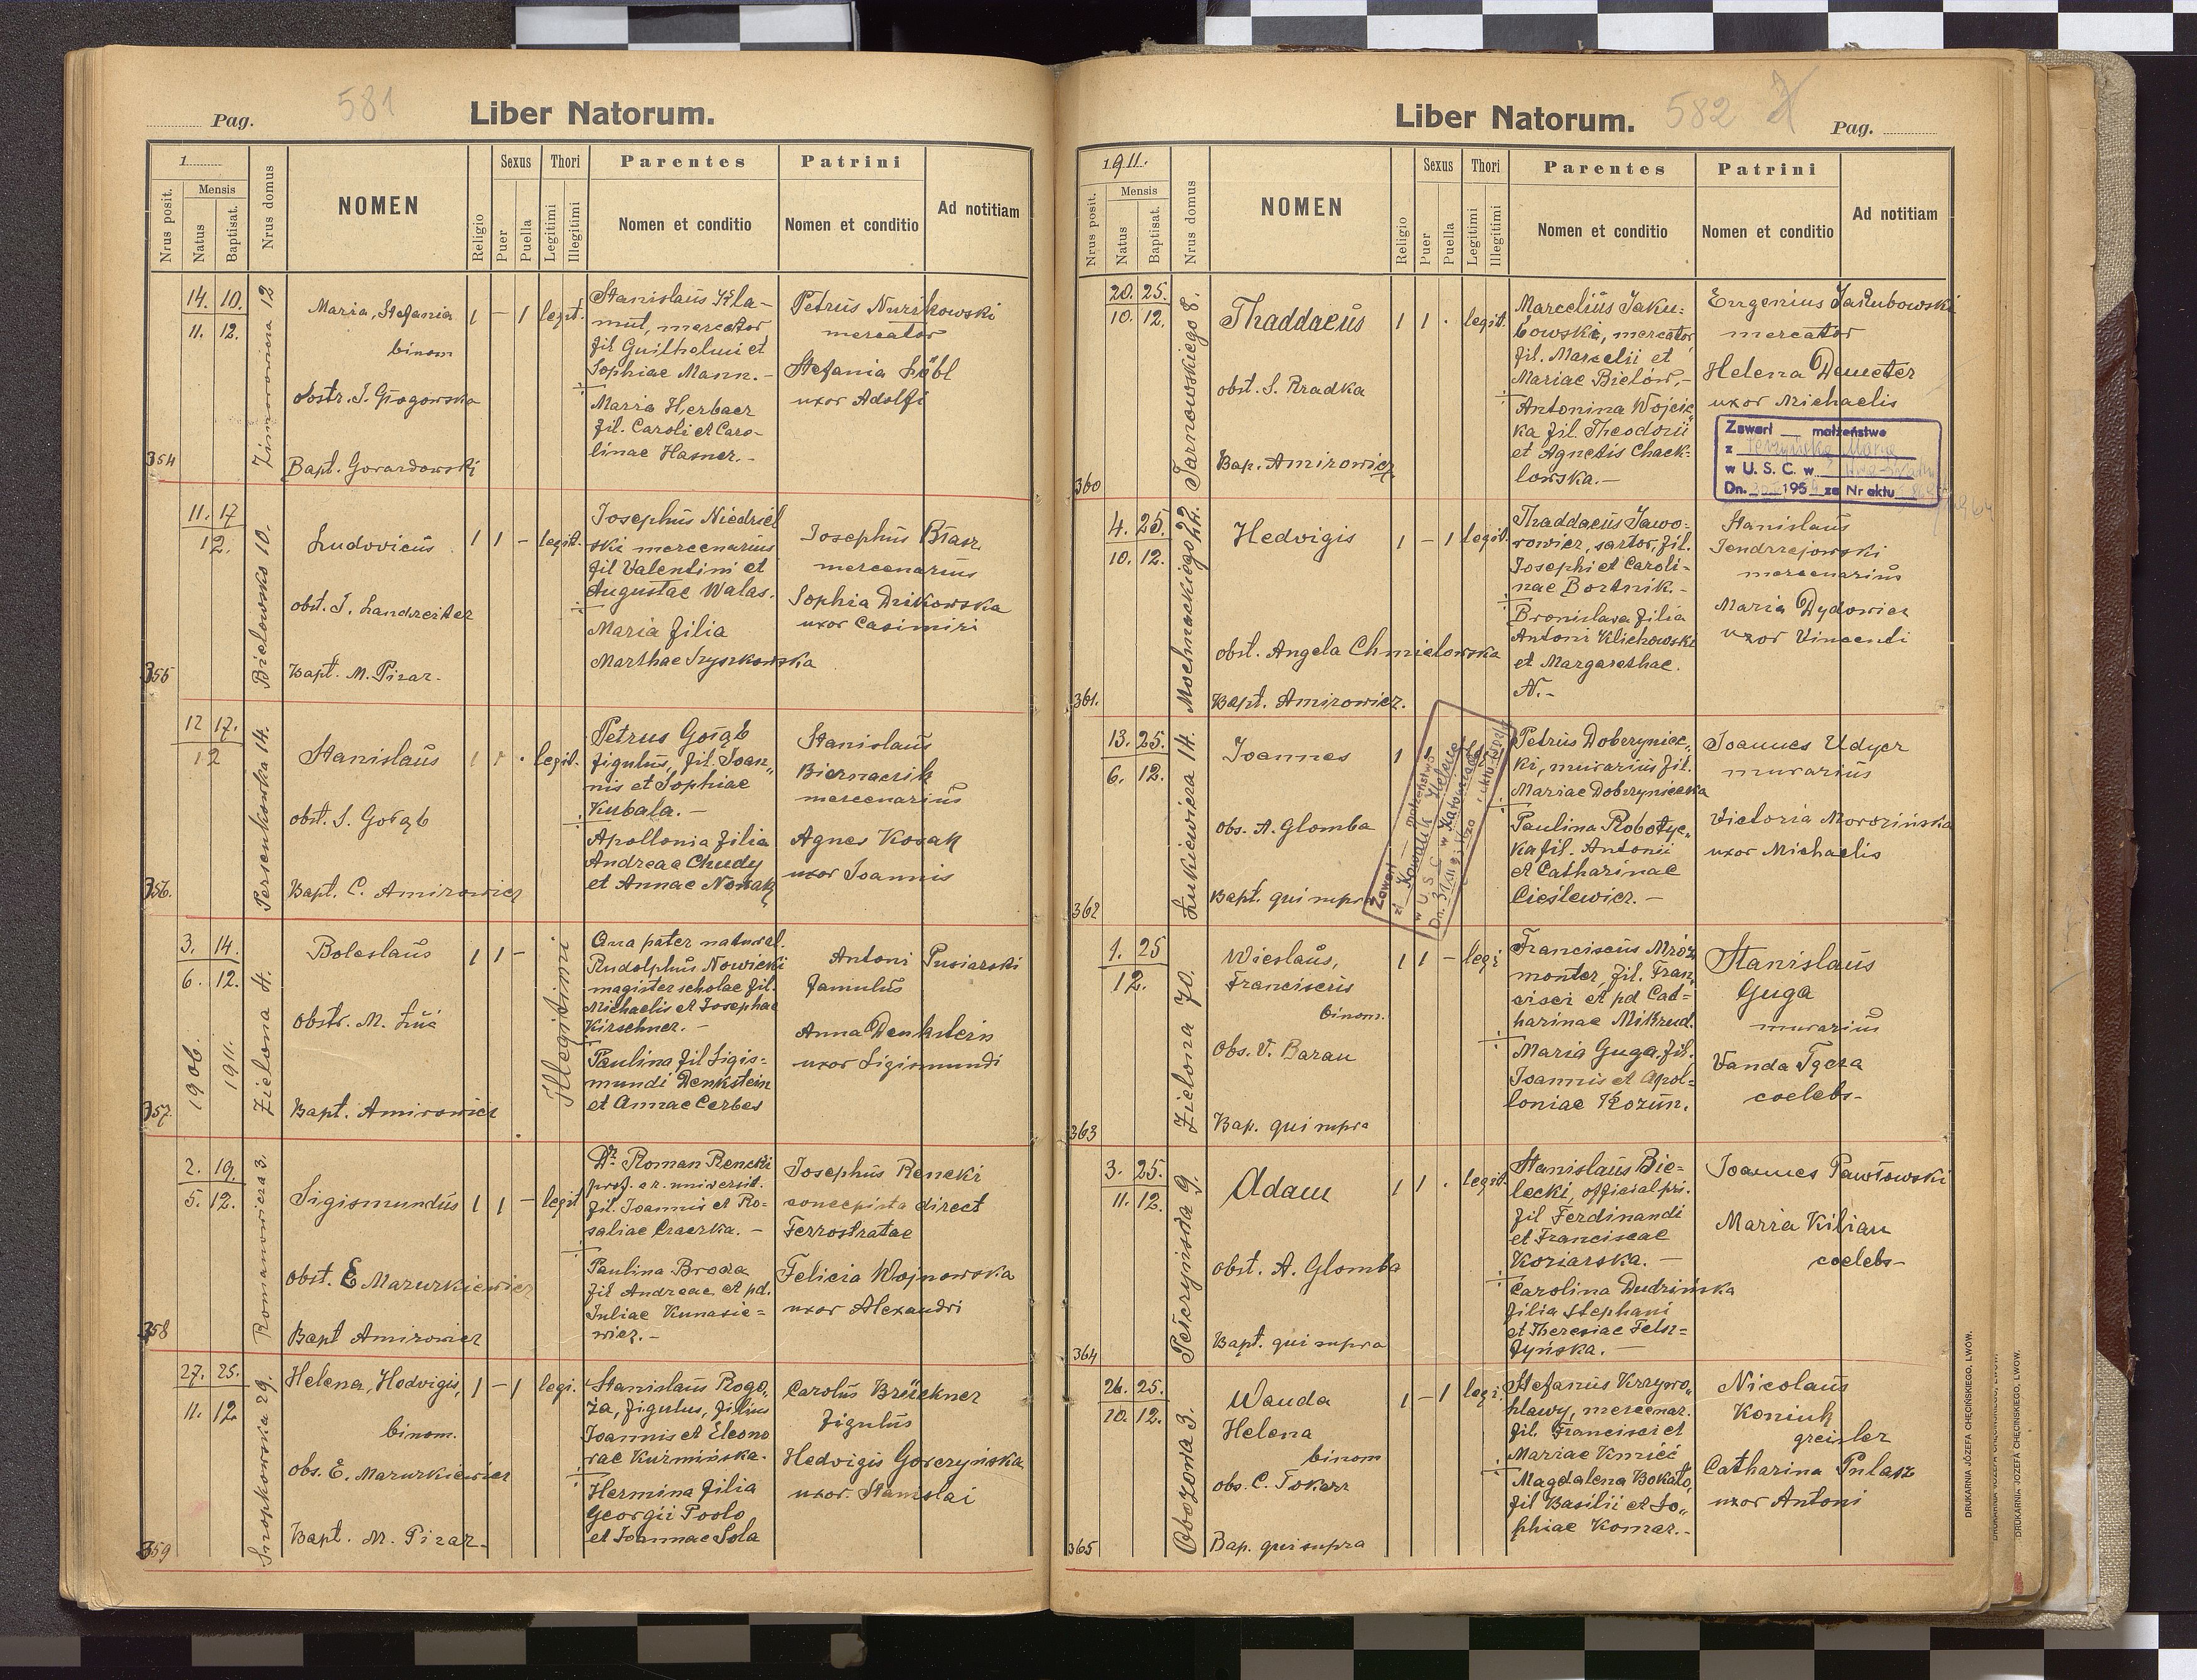 581
Pag.
Liber Natorum.
1
Nrus posit.
Mensis
Natus
Baptisat.
Nrus domus
NOMEN
Religio
Sexus
Puer
Puella
Thori
Legitimi
Illegitimi
Parentes
Nomen et conditio
Patrini
Nomen et conditio
Ad notitiam
354
14. 10.
11. 12.
Zimorowicza 12
Maria, Stefania
binom
obstr. J. Grogowska
Bapt. Gorardowski
1 – 1 legit.
Stanislaus Kla-
mut, mercator
fil Guilhelmi et
Sophiae Mann. –
Maria Herbaer
fil. Caroli et Caro-
linae Hasner. –
Petrus Nurikowski
mercator
Stefania Löbl
uxor Adolfi
355
11. 17
12.
Bielowsko 10.
Ludovicus
obst. J. Landreiter
Bapt. M. Pizar-
1 1 – legit.
Josephus Niedziel
ski mercenarius
fil Valentini et
Augustae Walas.
Maria filia
Marthae Szyszkowska
Josephus Biasz
mercenarius
Sophia Dzikowska
uxor Casimiri
356.
12 17.
12
Persenkowka 14.
Stanislaus
obst. S. Gołąb
Bapt. C. Amirowicz
1 1 . legit.
Petrus Gołąb
figulus, fil. Joan„
nis et Sophiae
Kubala. –
Apollonia filia
Andreae Chudy
et Annae Nowak
Stanislaus
Biernaczik
mercenarius
Agnes Kozak
uxor Joannis
357
3. 14.
6. 12.
1906. 1911.
Zielona 4.
Boleslaus
Obstr. M. Luś
Bapt. Amirowicz
1 1 –
Illegitimi
Qua pater natural.
Rudolphus Nowicki
magister scholae fil.
Michaelis et Josephae
Kirschner. –
Paulina fil Sigis=
mundi Denkstein
et Annae Cerbes
Antoni Pusiarski
famulus
Anna Denkstein
uxor Sigismundi
358
2. 19.
5. 12.
Romanowicza 3.
Sigismundus
obst. E Mazurkiewicz
Bapt Amirowicz
1 1 – legit
Dr. Roman Rencki
prof. a.r. universit.
fil. Joannis et Ro-
saliae Czaczka. –
Paulina Broda
fil Andreae et pd.
Juliae Kunasie=
wicz. –
Josephus Rencki
concepista direct
Ferrostratae
Felicia Wojnowska
uxor Alexandri
359
27. 25.
11. 12.
Snopkowska 29.
Helena, Hedvigis,
binom.
obs. E. Mazurkiewicz
Bapt. M. Pizar-
1 – 1 legi.
Stanislaus Rogo,
za, figulus, filius
Joannis et Eleono
rae Kuźmińska.
Hermina filia
Georgii Poolo
et Joannae Sola
Carolus Brückner
figulus
Hedvigis Gorczyńska
uxor Stanislai
Liber Natorum.
582
Pag.
1911.
Nrus posit.
Mensis
Natus
Baptisat.
Nrus domus
NOMEN
Religio
Sexus
Puer
Puella
Thori
Legitimi
Illegitimi
Parentes
Nomen et conditio
Patrini
Nomen et conditio
Ad notitiam
360
20. 25.
10. 12.
Tarnowskiego 8.
Thaddaeus
obst. S. Rradka
Bap. Amirowicz
1 1 . legit.
Marcelius Jaku=
bowski, mercator
fil. Marcelii et
Mariae Bielów, –
Antonina Wojcic
ka fil. Theodorii
et Agnetis Chack-
lowska. –
Eugenius Jakubowski
mercator
Helena Demeter
uxor Michaelis
Zawarł małżeństwo
z
w U. S. C. w
Dn. 195 za Nr aktu
361.
4. 25.
10. 12.
Mochnackiego 22
Hedvigis
obst. Angela Chmielowska
Bapt. Amirowicz.
1 – 1 legit.
Thaddaeus Jawo=
rowicz, sartor, fil.
Josephi et Caroli-
nae Bortnik. –
Bronislava filia
Antoni Klichowski
et Margarethae.
N. –
Stanislaus
Jendrzejowski
mercenarius
Maria Dydowicz
uxor Vincenti
362
13. 25.
6. 12.
Łukiewicza 14.
Joannes
obs. A. Glomba
Bapt. qui supra
1
Zawarł małżeństwo
z Kowaluk Helena
w U. S. C. w Katowicach
Petrus Doberzyniec„
ki, murarius fil.
Mariae Doberzyniecka
Paulina Robotyc„
ka fil. Antonii
et Catharinae
Cieślewicz. –
Joannes Udycz
murarius
Victoria Morozińska
uxor Michaelis
363
1. 25
12.
Zielona 70.
Wieslaus,
Franciscus
binom.
Obs. V. Baran
Bap. qui supra
1 1 – legi
Franciscus Mróz
monter, fil. Fran„
cisci et pd Cat=
harinae Mikrud.
Maria Guga, fil.
Joannis et Apol=
loniae Kozun.
Stanislaus
Guga
murarius
Vanda Tgcza
coelebs-
364
3. 25.
11. 12.
Petczyńska 9.
Adam
obst. A. Glomba
Bapt. qui supra
1 1 . legit.
Stanislaus Bie=
lecki, official pri.
fil Ferdinandi
et Franciscae
Koziarska. –
Carolina Dudzińska
filia Stephani
et Theresiae Felsz=
tyńska. –
Joannes Pawłowski
Maria Kilian
coelebs-
365
26. 25.
10. 12.
Obozowa 3.
Wanda
Helena
binom
obs. C. Tokarz
Bap. qui supra
1 – 1 legi.
Stefanus Krzywo„
hlawy, mercenar.
fil. Francisci et
Mariae Kmieć
Magdalena Bokało,
fil Basilii et So„
phiae Komar. –
Nicolaus
Koniuk
greisler
Catharina Pulasz
uxor Antoni
DRUKARNIA JÓZEFA CHĘCIŃSKIEGO, LWÓW.
DRUKARNIA JÓZEFA CHĘCIŃSKIEGO, LWÓW.
DRUKARNIA JÓZEFA CHĘCIŃSKIEGO, LWÓW.